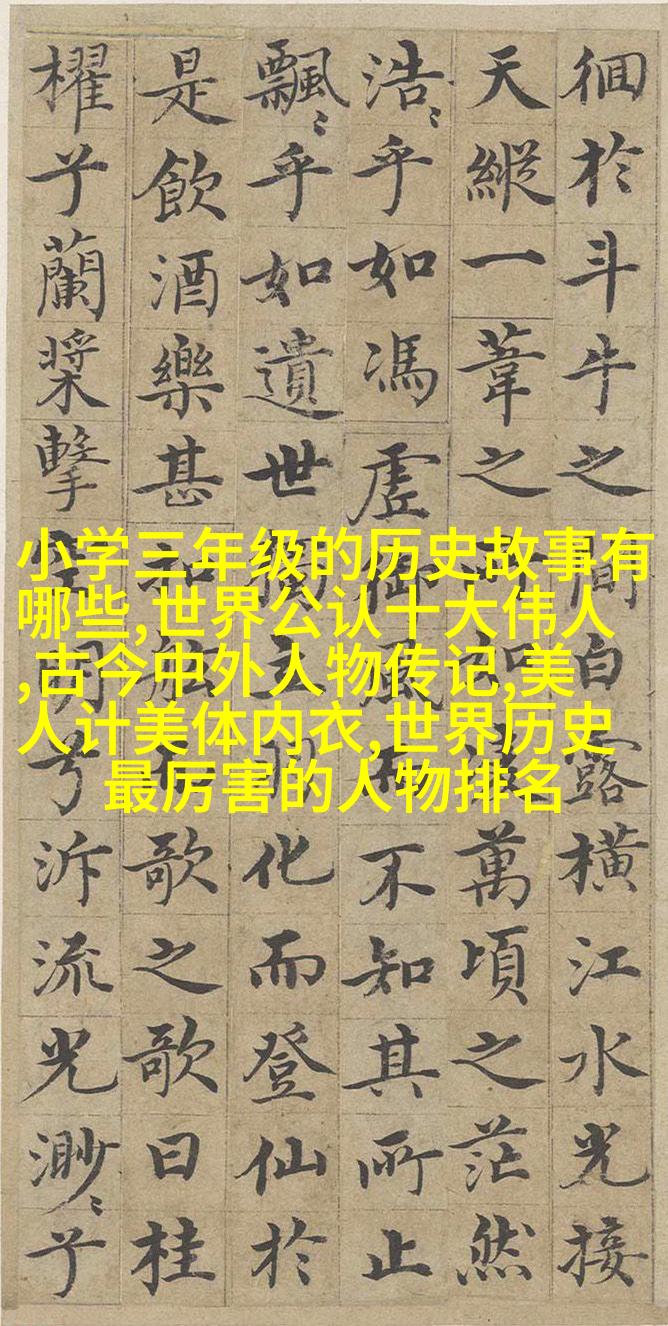 徊於斗牛之間白露橫江水光接
天縱一葦之所如萬頃之茫然
浩〻乎如馮虛御風而不知其所止
飄〻乎如遺世獨立化而登仙於
是飲酒樂甚舷歌之歌曰桂
櫂兮蘭槳擊空明兮泝流光渺〻兮
小学三年级的历史故事有
哪些,世界公认十大伟人
,古今中外人物传记,美
人计美体内衣,世界历史
最厉害的人物排名